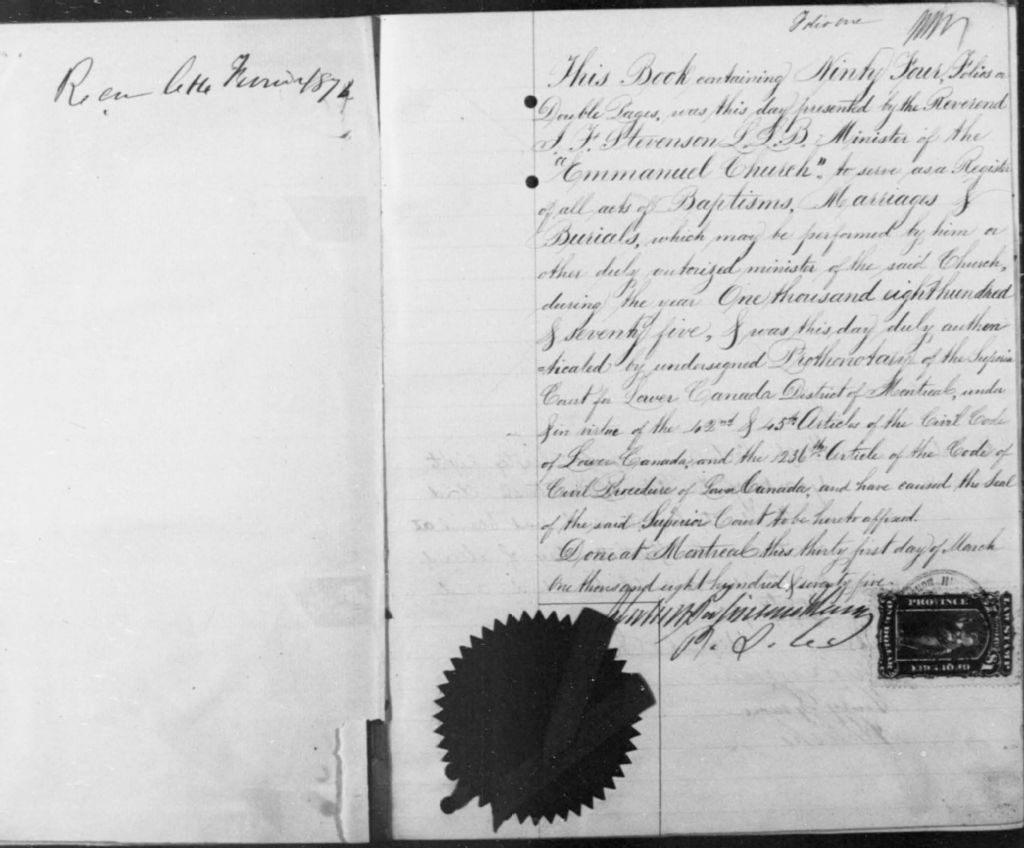 1874
Folio one
This Book containing Ninty Four Folios or
Double Pages, was this day presented by the Reverend
J. F. Stevenson L.L.B. Minister of the
"Emmanuel Church". to serve as a Register
of all acts of Baptisms, Marriages &
Burials, which may be performed by him or
other duly autorized minister of the said Church,
during the year One thousand eight hundred
& seventy five, & was this day duly authen
=ticated by undersigned Prothonotary of the Superior
Court for Lower Canada District of Montreal, under
& in virtue of the 42nd & 45th Articles of the Civil Code
of Lower Canada, and the 1236th Article of the Code of
Civil Procedure of Lower Canada, and have caused the Seal
of the said Superior Court to be hereto affixed.
Done at Montreal this thirty first day of March
One thousand eight hundred & seventy five.
PROVINCE
ONE DOLLAR
LAW STAMP